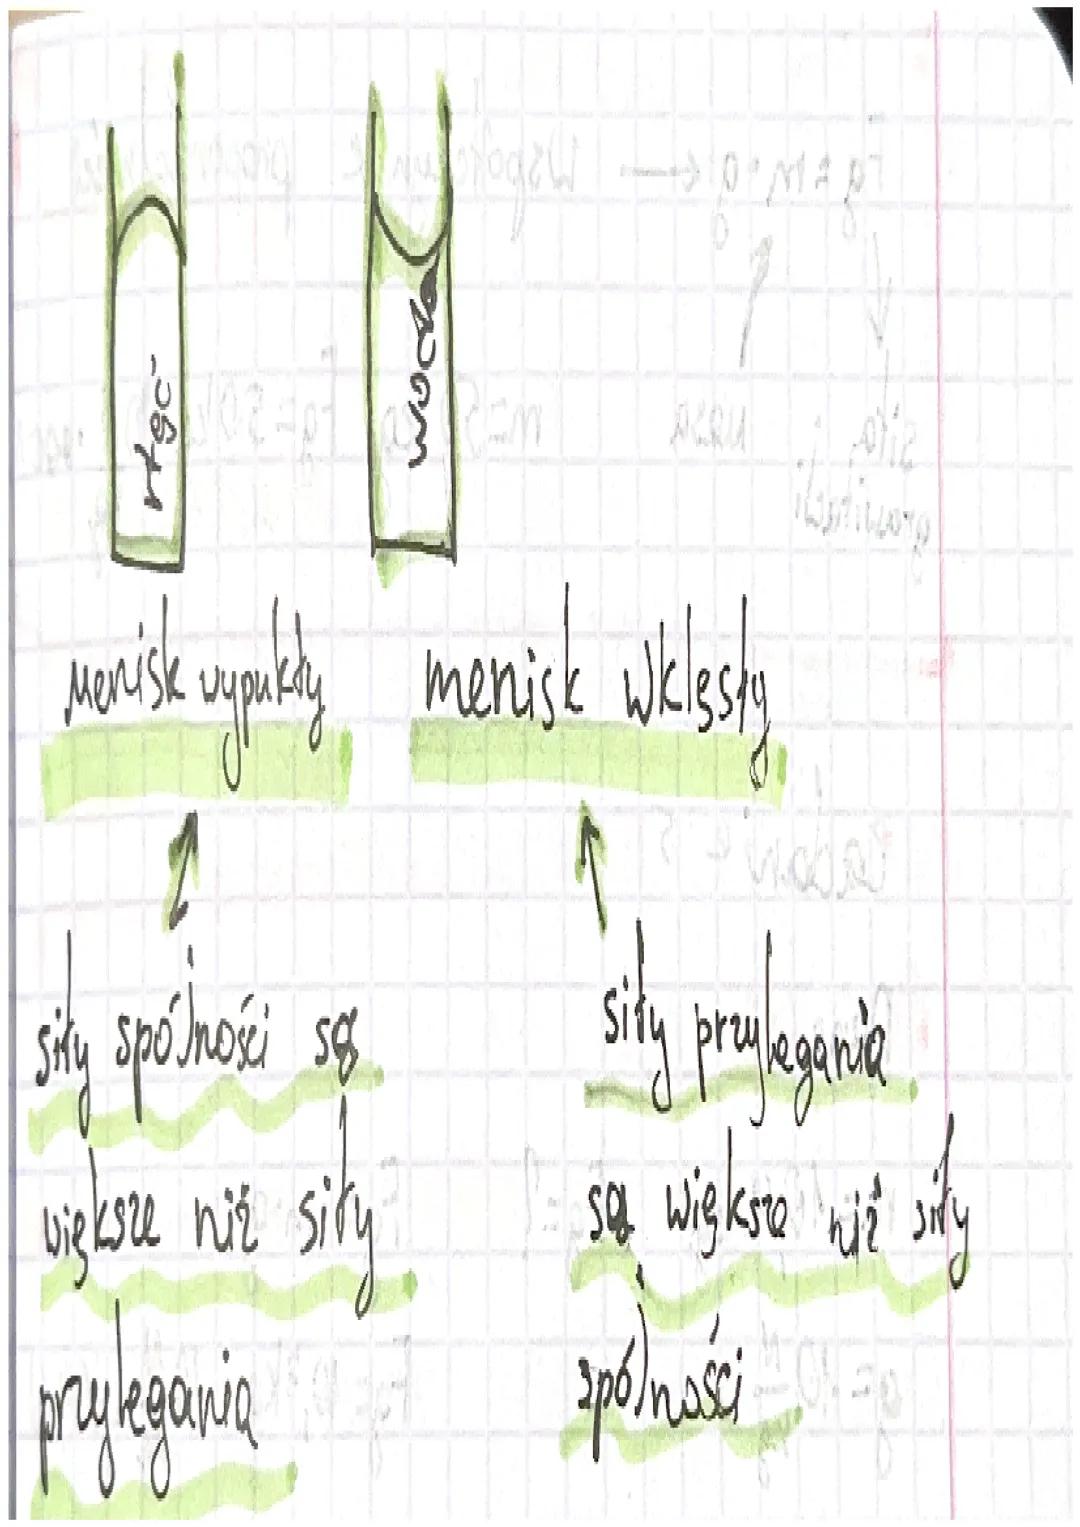 rtęć
woda
Menisk wypukły
menisk wklęsły
siły spójności są
większe niż siły
przylegania
siły przylegania
są większe niż siły
spójności